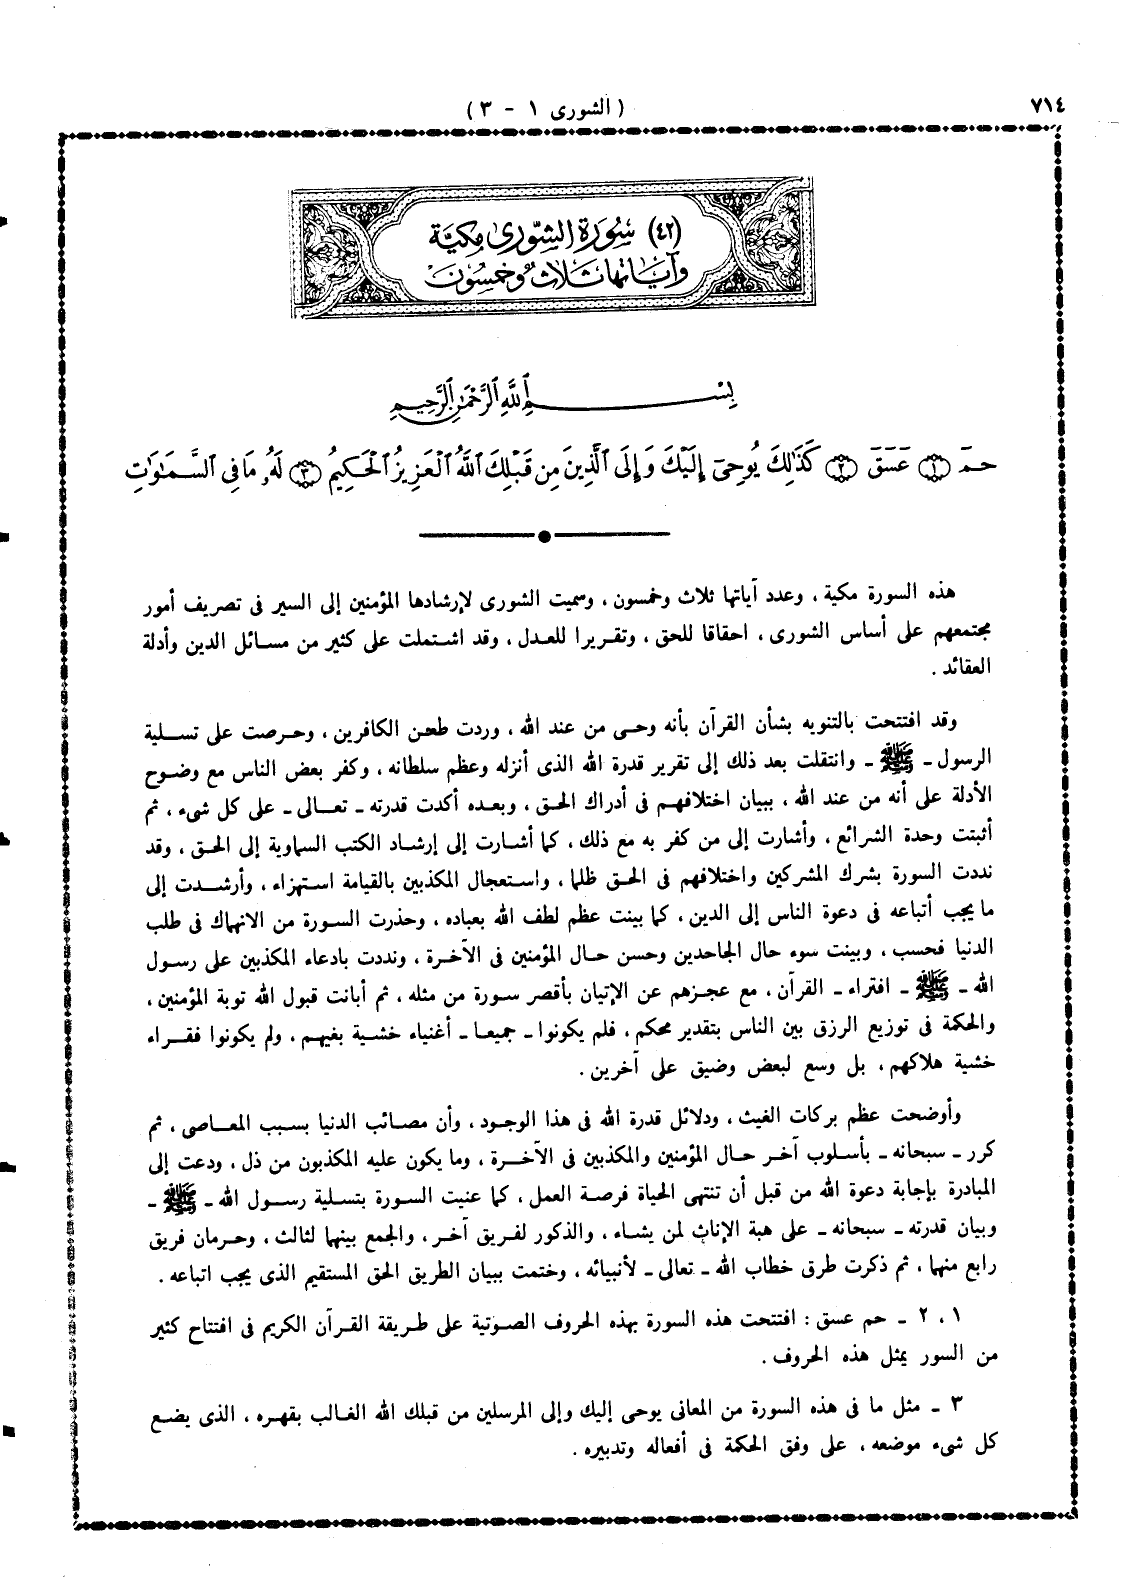 ٧١٤
( الشورى ١ - ٣ )
(٤٢) سُورَة الشّورى مكيّة
وآياتها ثلاث وخمسون
بِسْمِ ٱللَّهِ ٱلرَّحْمَٰنِ ٱلرَّحِيمِ
حمٓ ١ عٓسٓقٓ ٢ كَذَٰلِكَ يُوحِىٓ إِلَيْكَ وَإِلَى ٱلَّذِينَ مِن قَبْلِكَ ٱللَّهُ ٱلْعَزِيزُ ٱلْحَكِيمُ ٣ لَهُۥ مَا فِى ٱلسَّمَٰوَٰتِ
هذه السورة مكية ، وعدد آياتها ثلاث وخمسون ، وسميت الشورى لإرشادها المؤمنين إلى السير فى تصريف أمور
مجتمعهم على أساس الشورى ، احقاقا للحق ، وتقريرا للعدل ، وقد اشتملت على كثير من مسائل الدين وأدلة
العقائد .
وقد افتتحت بالتنويه بشأن القرآن بأنه وحى من عند الله ، وردت طعن الكافرين ، وحرصت على تسلية
الرسول ـ ﷺ ـ وانتقلت بعد ذلك إلى تقرير قدرة الله الذى أنزله وعظم سلطانه ، وكفر بعض الناس مع وضوح
الأدلة على أنه من عند الله ، ببيان اختلافهم فى أدراك الحق ، وبعده أكدت قدرته ـ تعالى ـ على كل شىء ، ثم
أثبتت وحدة الشرائع ، وأشارت إلى من كفر به مع ذلك ، كما أشارت إلى إرشاد الكتب السماوية إلى الحق ، وقد
نددت السورة بشرك المشركين واختلافهم فى الحق ظلما ، واستعجال المكذبين بالقيامة استهزاء ، وأرشدت إلى
ما يجب أتباعه فى دعوة الناس إلى الدين ، كما بينت عظم لطف الله بعباده ، وحذرت السورة من الانهماك فى طلب
الدنيا فحسب ، وبينت سوء حال الجاحدين وحسن حال المؤمنين فى الآخرة ، ونددت بادعاء المكذبين على رسول
الله ـ ﷺ ـ افتراء ـ القرآن ، مع عجزهم عن الإتيان بأقصر سورة من مثله ، ثم أبانت قبول الله توبة المؤمنين ،
والحكمة فى توزيع الرزق بين الناس بتقدير محكم ، فلم يكونوا ـ جميعا ـ أغنياء خشية بغيهم ، ولم يكونوا فقراء
خشية هلاكهم ، بل وسع لبعض وضيق على آخرين .
وأوضحت عظم بركات الغيث ، ودلائل قدرة الله فى هذا الوجود ، وأن مصائب الدنيا بسبب المعاصى ، ثم
كرر ـ سبحانه ـ بأسلوب آخر حال المؤمنين والمكذبين فى الآخرة ، وما يكون عليه المكذبون من ذل ، ودعت إلى
المبادرة بإجابة دعوة الله من قبل أن تنتهى الحياة فرصة العمل ، كما عنيت السورة بتسلية رسول الله ـ ﷺ ـ
وبيان قدرته ـ سبحانه ـ على هبة الإناث لمن يشاء ، والذكور لفريق آخر ، والجمع بينهما لثالث ، وحرمان فريق
رابع منهما ، ثم ذكرت طرق خطاب الله ـ تعالى ـ لأنبيائه ، وختمت ببيان الطريق الحق المستقيم الذى يجب اتباعه .
١ ، ٢ ـ حم عسق : افتتحت هذه السورة بهذه الحروف الصوتية على طريقة القرآن الكريم فى افتتاح كثير
من السور بمثل هذه الحروف .
٣ ـ مثل ما فى هذه السورة من المعانى يوحى إليك وإلى المرسلين من قبلك الله الغالب بقهره ، الذى يضع
كل شىء موضعه ، على وفق الحكمة فى أفعاله وتدبيره .